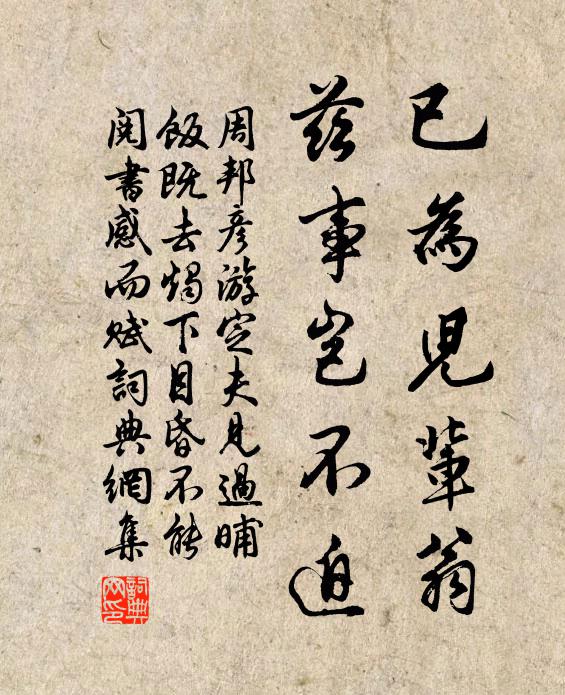 已為兒輩翁
茲事豈不迫
周邦彥游定夫見過晡
飯既去燭下目昏不能
閱書感而賦詞典網集
詞典網印